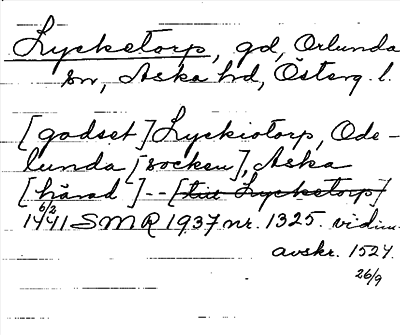 Lycketorp, gd, Orlunda
sn, Aska hd, Österg. l.
[godset] Lyckiotorp, Ode-
lunda [socken], Aska
[härad] -- [till Lycketorp]
6/2
1441 SMR 1937 nr. 1325. vidim.
avskr. 1524.
26/9